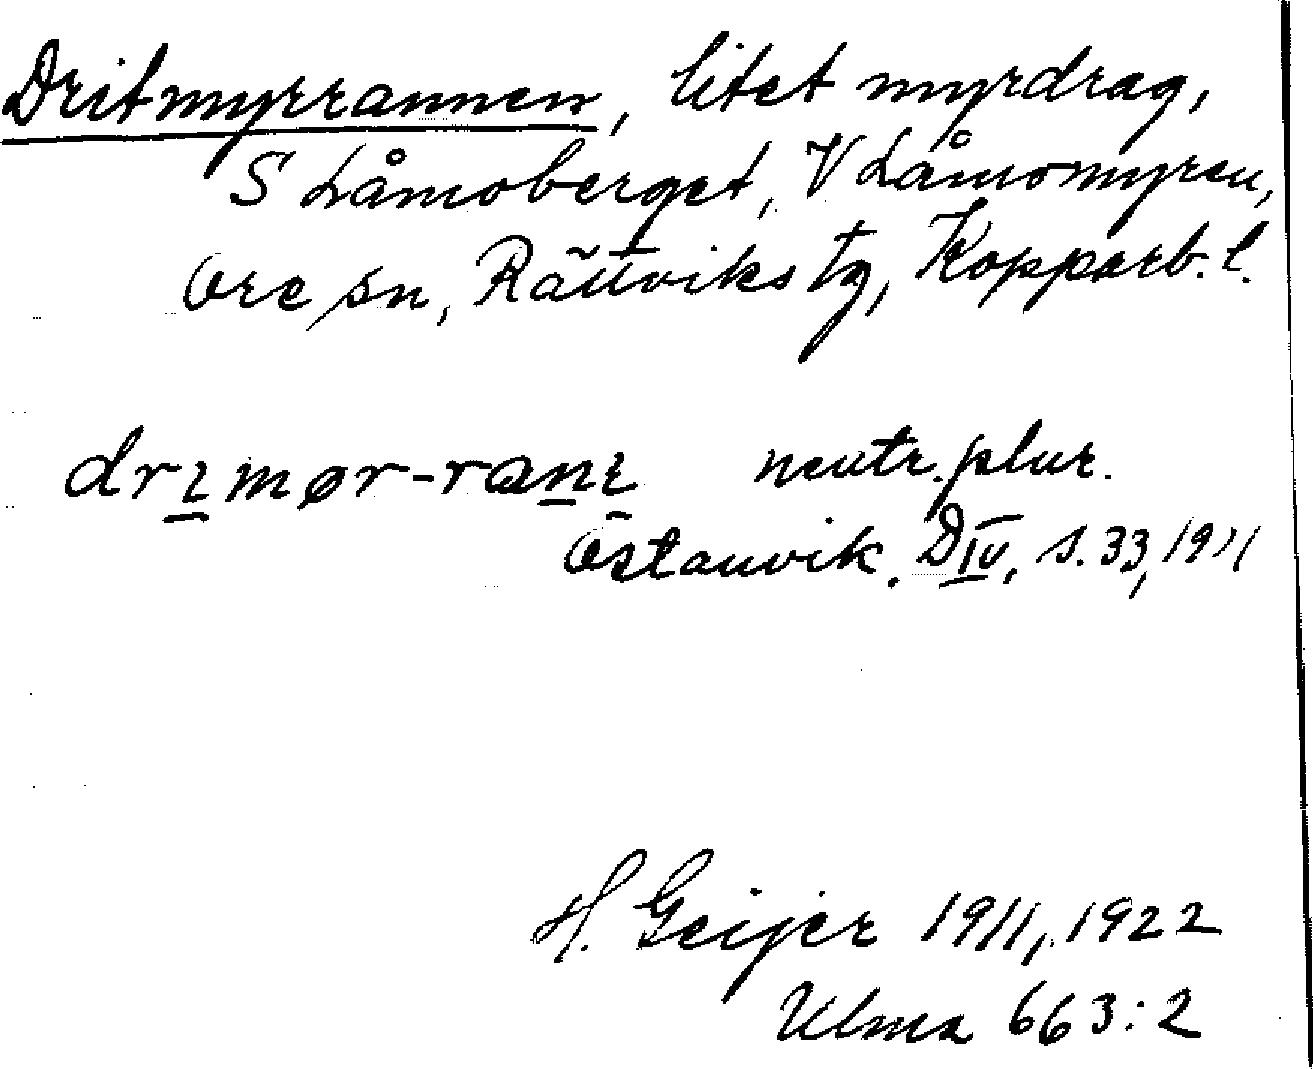 Dritmyrrannen, litet myrdrag,
S Låmoberget, V Låmomyren,
Ore sn, Rättviks tg, Kopparb. l.
drımør-ranı neutr. plur.
Östanvik. D IV, s. 33, 1911
H. Geijer 1911, 1922
Ulma 663:2